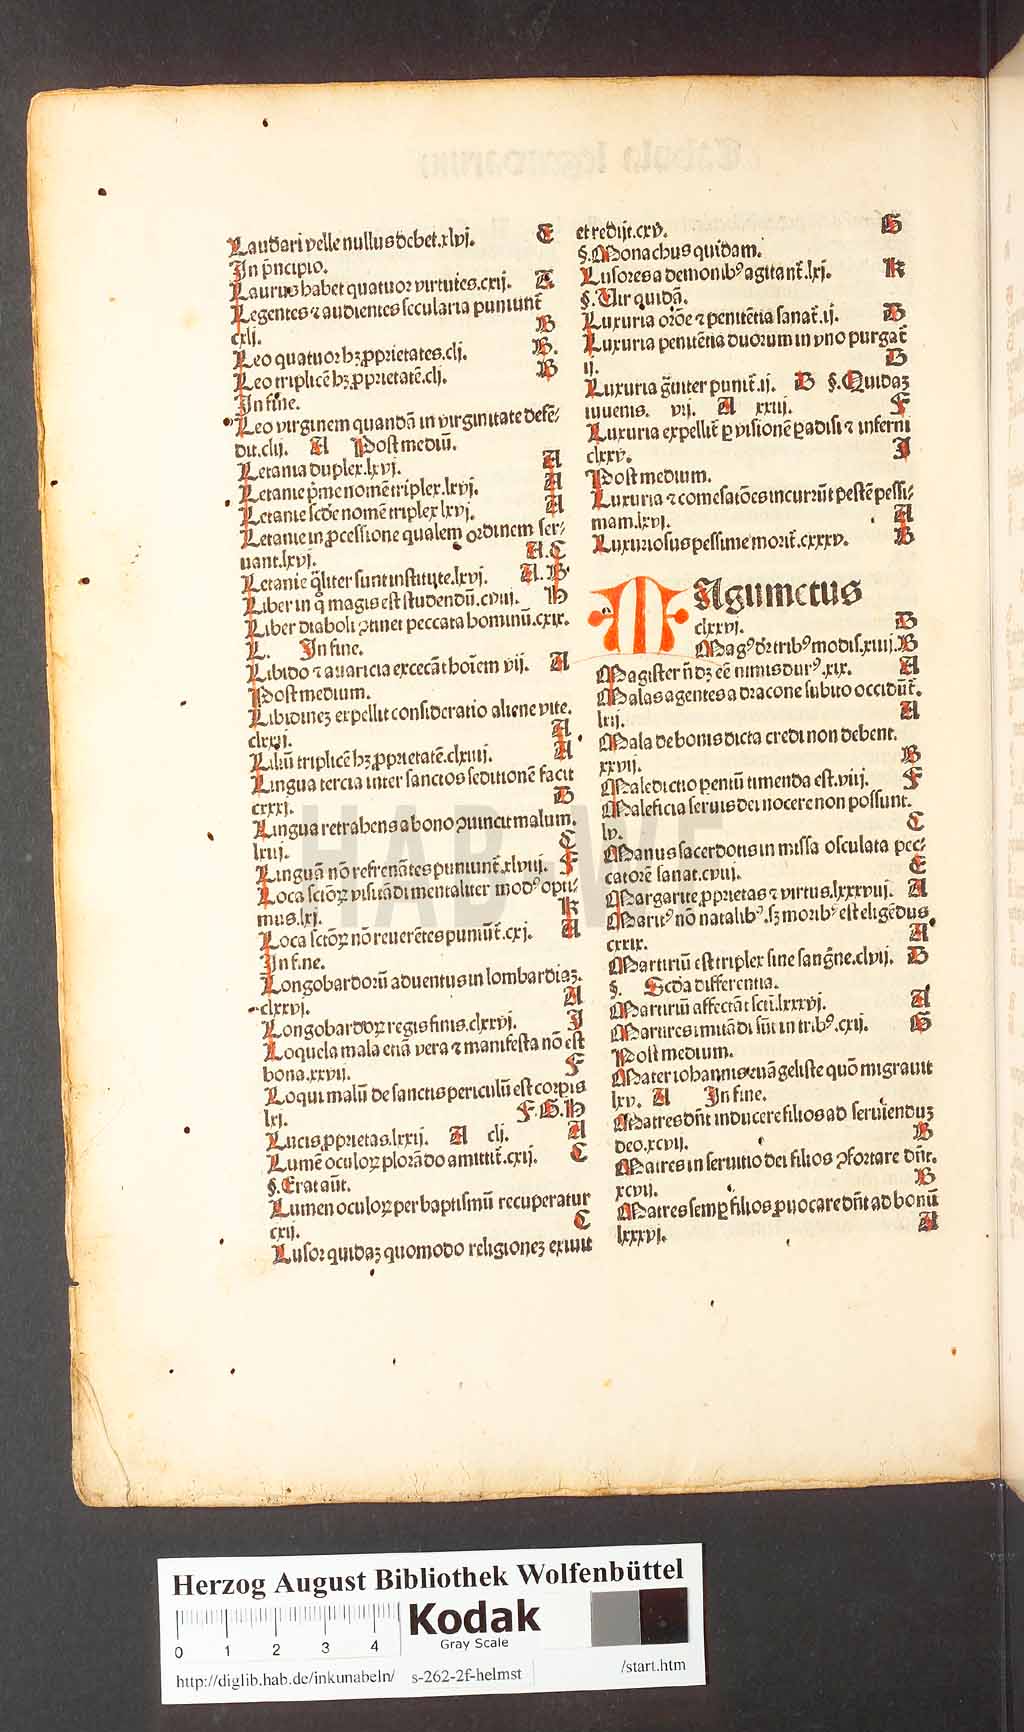 Laudari velle nullus debet.xlvj. E
In pͥncipio.
Laurus habet quatuor virtutes.cxij. A
Legentes ⁊ audientes secularia puniunt̄
cxlj. B
Leo quatuor hꝫ ꝓprietates.clj. B.
Leo triplicē hꝫ ꝓprietatē.clj. B
In fine.
Leo virginem quandā in virginitate defē⸗
dit.clij. A Post mediū.
Letania duplex.lxvj. A
Letanie pͥme nomē triplex.lxvj. A
Letanie scđe nomē triplex lxvj. A
Letanie in ꝓcessione qualem ordinem ser⸗
uant.lxvj. A.C
Letanie q̄liter sunt institute.lxvj. A.B
Liber in q̊ magis est studendū.cviij. H
Liber diaboli ꝯtinet peccata hominū.cxix.
L. In fine.
Libido ⁊ auaricia excecāt hoīem vij. A
Post medium.
Libidinez expellit consideratio aliene vite.
clxxj. A
Liliū triplicē hꝫ ꝓprietatē.clxiiij. A
Lingua tercia inter sanctos seditionē facit
cxxxj. B
Lingua retrahens a bono ꝯuincit malum.
lxiij. C
Linguā nō refrenātes puniunt̄.xlviij. F
Loca sctōꝝ visitādi mentaliter modꝰ opti⸗
mus.lxj. K
Loca sctōꝝ nō reuerētes puniūt̄.cxj. A
In fine.
Longobardorū aduentus in lombardiaꝫ.
clxxvj. A
Longobardoꝝ regis finis.clxxvj. I
Loquela mala etiā vera ⁊ manifesta nō est
bona.xxvij. F
Loqui malū de sanctis periculū est corpis
lxj. F.G.H
Lucis ꝓprietas.lxxij. A clj. A
Lumē oculoꝝ plorādo amittit̄.cxij. C
§.Erat aūt.
Lumen oculoꝝ per baptismū recuperatur
cxij. C
Lusor quidaꝫ quomodo religioneꝫ exiuit
et redijt.cxv. G
§.Monachus quidam.
Lusores a demonibꝰ agitant̄.lxj. K
§.Vir quidā.
Luxuria orōe ⁊ penitētia sanat̄.ij. B
Luxuria penitētia duorum in vno purgat̄
ij. B
Luxuria grauiter punit̄.ij. B §.Quidaꝫ
iuuenis. vij. A xxiij. F
Luxuria expellit̄ ꝑ visionē ꝑadisi ⁊ inferni
clxxv. I
Post medium.
Luxuria ⁊ comesatōes incurrūt pestē pessi⸗
mam.lxvj. A
Luxuriosus pessime morit̄.cxxxv. B
MAgumetus
clxxvj. B
Magꝰ dr̄ tribꝰ modis.xiiij. B
Magister nō dꝫ eē nimis durꝰ.xix. A
Malas agentes a dracone subito occidūt̄.
lxij. A
Mala de bonis dicta credi non debent.
xxvij. B
Maledictio parentū timenda est.viij. F
Maleficia seruis dei nocere non possunt.
lv. C
Manus sacerdotis in missa osculata pec⸗
catorē sanat.cviij. E
Margarite ꝓprietas ⁊ virtus.lxxxviij. A
Maritꝰ nō natalibꝰ.sꝫ moribꝰ est eligēdus
cxxix. A
Martiriū est triplex sine sangͥne.clvij. B
§. Scđa differentia.
Martiriū affectāt scti.lxxxvj. A
Martires imitādi sūt in tribꝰ.cxij. G
Post medium.
Mater iohannis euāgeliste quō migrauit
lxv. A In fine.
Matres dn̄t inducere filios ad seruienduꝫ
deo.xcvij. B
Matres in seruitio dei filios ꝯfortare dn̄t.
xcvij. B
Matres semꝑ filios ꝓuocare dn̄t ad bonū
lxxxvj. A
HAB-WF
Herzog August Bibliothek Wolfenbüttel
0 1 2 3 4
Kodak
Gray Scale
http://diglib.hab.de/inkunabeln/ s-262-2f-helmst /start.htm